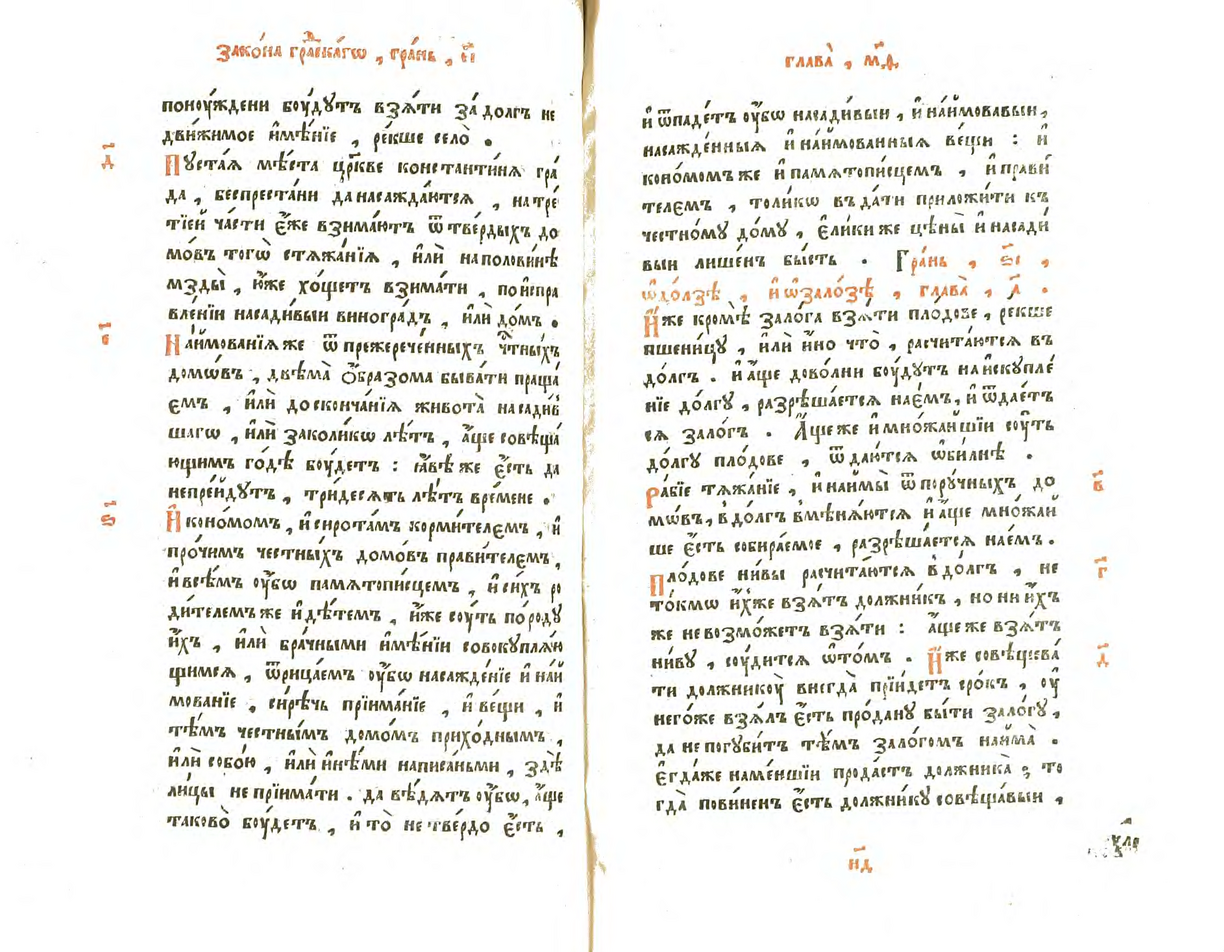 Зако́на гра́дскагѡ , гра́нь , є҃і
поноу́ждени боу́дутъ взѧ́ти за́ долгъ не
дви́жимое и҆мѣ́нїе , ре́кше село̀ .
д҃і
Пуста́ѧ мѣ́ста цр҃кве константи́нѧ гра́
да , беспреста́ни да насажда́ютсѧ , на тре́
тїей ча́сти є҆́же взима́ютъ ѿ тве́рдыхъ до
мо́въ тогѡ̀ стѧжа́нїѧ , и҆лѝ на полови́нѣ
мзды̀ , ю҆́же хо́щетъ взима́ти , по и҆спра
вле́нїи насади́выи виногра́дъ , и҆лѝ до́мъ .
є҃і
На́имованїѧ же ѿ прежерече́нныхъ ч҃тны́хъ
домѡ́въ , двѣ́ма ѻ҆́бразома быва́ти праща́
емъ , и҆лѝ до сконча́нїѧ живота̀ насади́в
шагѡ , и҆лѝ за коли́кѡ лѣ́тъ , а҆́ще совѣща́
ющимъ го́дѣ боу́детъ : ꙗ҆́вѣ же є҆́сть да
непре́йдутъ , три́десѧть лѣ́тъ времене .
ѕ҃і
И҆коно́момъ , и҆ сирота́мъ корми́телємъ , и҆
про́чимъ че́стны́хъ домо́въ прави́телємъ ,
и҆ все́мъ оу҆́бѡ памѧтопи́сцемъ , и҆ си́хъ ро
ди́телемъ же и҆ дѣ́темъ , и҆́же соу́ть по ро́ду
и҆́хъ , и҆лѝ бра́чными и҆мѣ́нїи совокуплѧ́ю
щимсѧ , ѿрица́емъ оу҆́бѡ насажде́нїе и҆ наи
мова́нїе , си́рѣчь прїима́нїе , и҆ ве́щи , и҆
тѣ́мъ че́стны́мъ домо́мъ прихо́днымъ ,
и҆лѝ собо́ю , и҆лѝ и҆нѣ́ми написа́ными , здѣ̀
ли́цы не прїима́ти . да вѣ́дѧтъ оу҆́бѡ , а҆́ще
таково̀ боу́детъ , и҆ то̀ не тве́рдо є҆́сть ,
глава̀ , м҃ѳ
и҆ ѿпаде́тъ оу҆́бѡ насади́выи , и҆ на́имовавыи ,
насажде́нныѧ и҆ на́имованныѧ ве́щи : и҆
коно́момъ же и҆ памѧтопи́сцемъ , и҆ прави́
телємъ , толи́кѡ въда́ти приложи́ти къ
че́стному до́му , є҆ли́ки же цѣны̀ и҆ насади́
выи лише́нъ бы́сть . Гра́нь , ѕ҃і ,
ѡ҆ до́лзѣ , и҆ ѡ҆ зало́зѣ , глава̀ , а҃ .
И҆́же кромѣ̀ зало́га взѧ́ти плодо́ве , ре́кше
пшени́цу , и҆лѝ и҆́но что̀ , расчита́ютсѧ въ
до́лгъ . и҆ а҆́ще дово́лни боу́дутъ на и҆скупле́
нїе до́лгу , разрѣша́етсѧ нае́мъ , и҆ ѿдае́тъ
сѧ зало́гъ . А҆́ще же и҆ мно́жаишїи соу́ть
до́лгу плодо́ве , ѿдаю́тсѧ ѡ҆би́лнѣ .
в҃
Ра́бїе тѧжа́нїе , и҆ наимы̀ ѿ пору́чныхъ до
мѡ́въ , в до́лгъ вмѣнѧ́ютсѧ и҆ а҆́ще мно́жаи
ше є҆́сть собира́емое , разрѣша́етсѧ нае́мъ .
г҃
Плодо́ве ни́вы расчита́ютсѧ в до́лгъ , не
то́кмѡ и҆́хже взѧ́тъ должни́къ , но ни и҆́хъ
же не возмо́жетъ взѧ́ти : а҆́ще же взѧ́тъ
ни́ву , соу́дитсѧ ѡ҆ то́мъ . И҆́же совѣщева́
д҃
ти должникоу̀ внегда̀ прїи́детъ сро́къ , оу҆
него́же взѧ́лъ є҆́сть про́дану бы́ти зало́гу ,
да не погуби́тъ тѣ́мъ зало́гомъ найма̀ .
Є҆гда́же наме́ншїи прода́стъ должника̀ ; то
гда̀ пови́ненъ є҆́сть должнику̀ совѣща́выи ,
н҃д